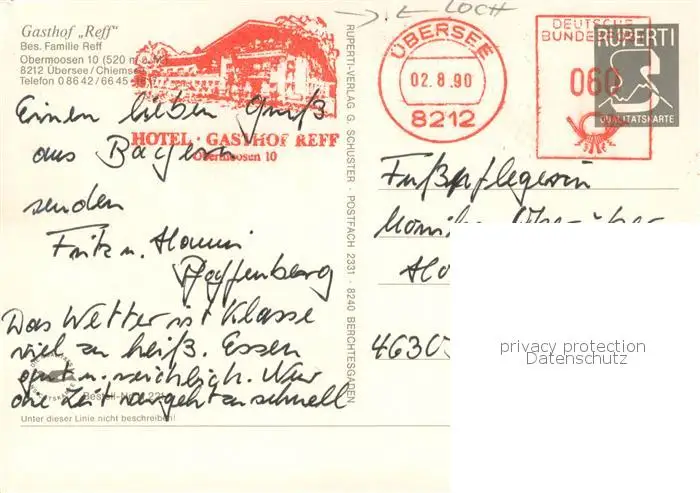 ← LOCH
Gasthof „Reff"
Bes. Familie Reff
Obermoosen 10 (520 m ü. M.)
8212 Übersee/Chiemsee
Telefon 0 86 42 / 66 45
HOTEL · GASTHOF REFF
Obermoosen 10
ÜBERSEE
02.8.90
8212
DEUTSCHE
BUNDESPOST
060
RUPERTI
QUALITÄTSKARTE
Einen lieben Gruß
aus Bayern
senden
Fritz u. Hanni
Pfaffenberg
Das Wetter ist Klasse
viel zu heiß. Essen
gut u. reichlich. Nur
die Zeit vergeht zu schnell
Bestell-Nr.
Unter dieser Linie nicht beschreiben!
RUPERTI-VERLAG G. SCHUSTER · POSTFACH 2331 · 8240 BERCHTESGADEN
Fußpflegerin
4630
privacy protection
Datenschutz